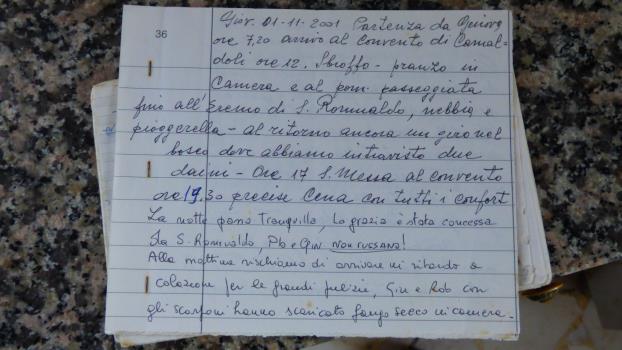 36
Giov. 01-11-2001 Partenza da
ore 7,20 arrivo al convento di Camal=
doli ore 12. Sbroffo - pranzo in
Camera e al pom. passeggiata
fino all'Eremo di S. Romualdo, nebbia e
pioggerella - al ritorno ancora un giro nel
bosco dove abbiamo intravisto due
daini - Ore 17 S. Messa al convento
ore 19.30 precise Cena con tutti i confort
La notte passò tranquilla, la grazia è stata concessa
da S. Romualdo, e NON RUSSANO!
Alla mattina rischiamo di arrivare in ritardo a
colazione per le grandi pulizie, Giu e Rob con
gli scarponi hanno scaricato fango secco in camera.